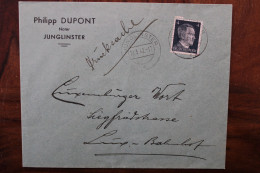 Philipp DUPONT
Notar
JUNGLINSTER
Drucksache
Luxemburger Wort
Siegfriedstrasse
Lux-Bahnhof